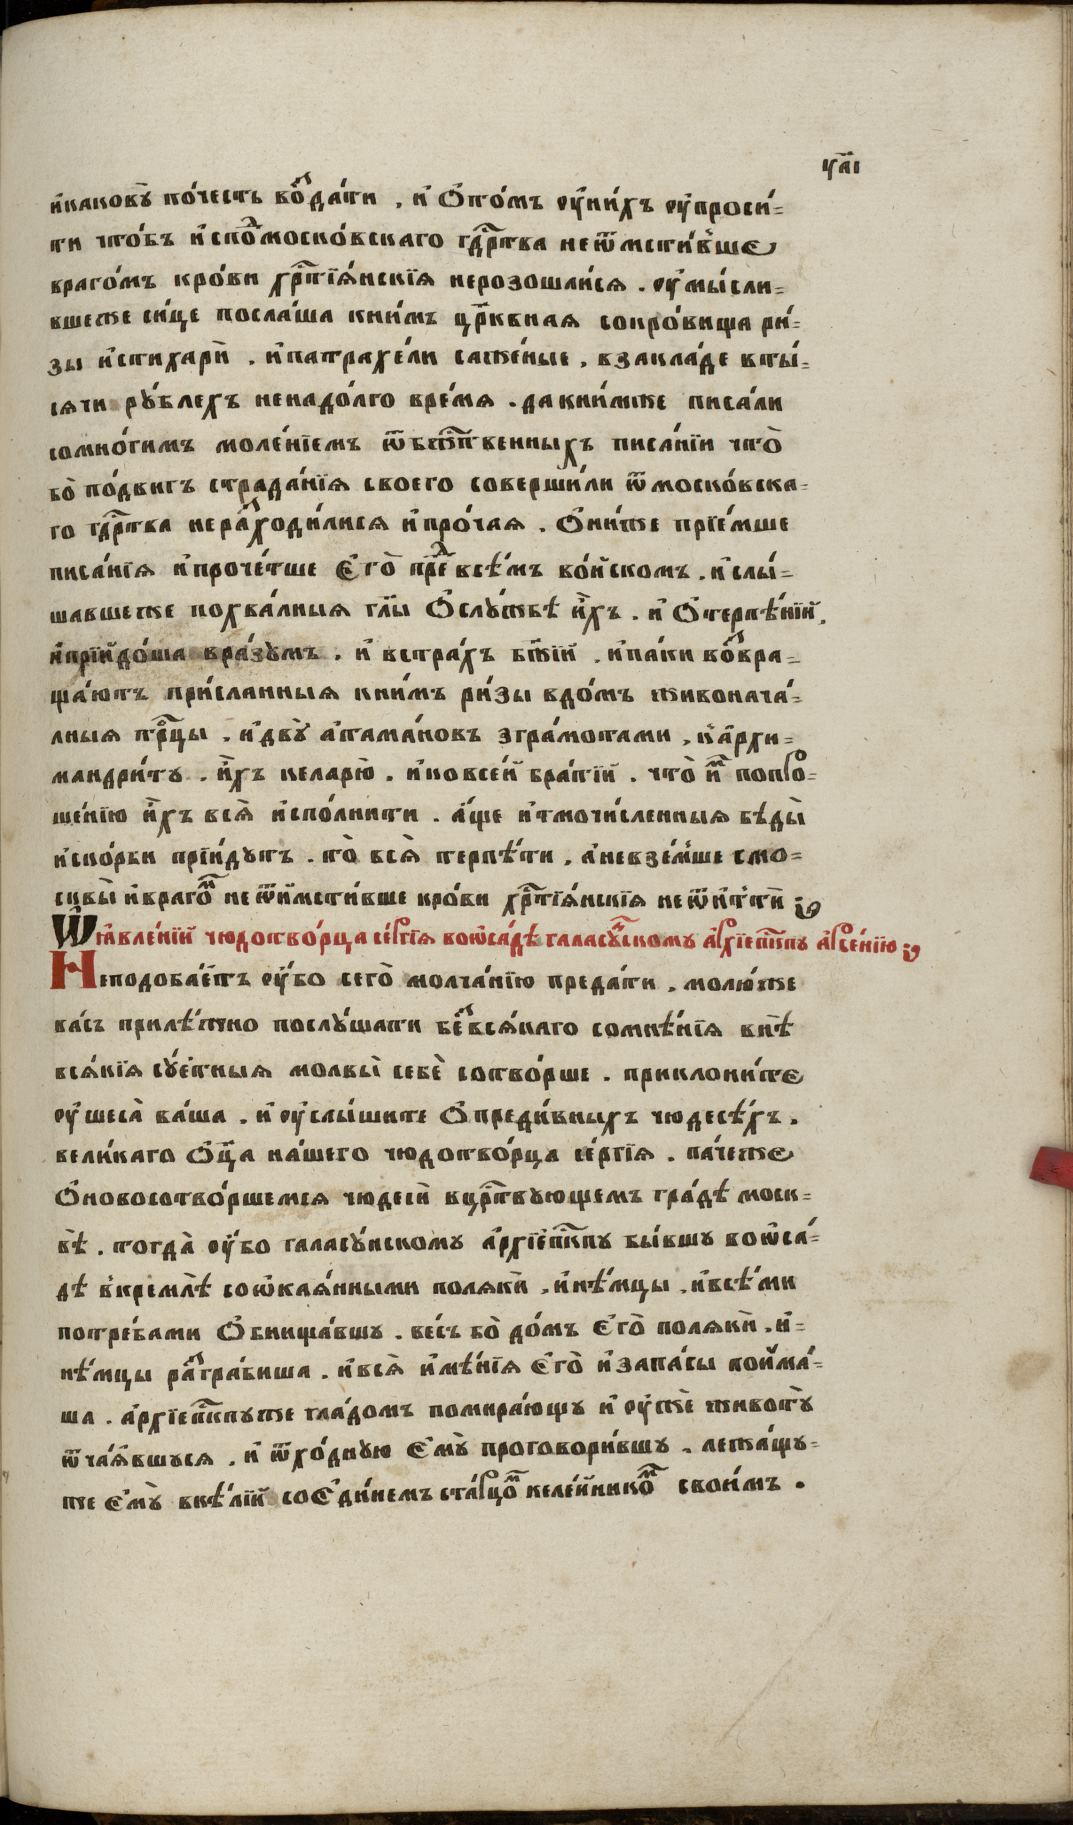 ц҃аі
и҆каковꙋ̀ по́честь воⷥ҇да́ти , и҆ ѻ҆то́мъ ᲂу҆ни́хъ ᲂу҆проси́=
ти что́бъ и҆споⷣ московскаго гдⷭ҇рьтва неѿмсти́вше
враго́мъ кро́ви хрⷭ҇тїѧ́нскїѧ нерозошли́сѧ . ᲂу҆мы́сли=
вшеже си́це посла́ша кни́мъ цр҃ковная сокро́вища ри́=
зы и҆стихарѝ . и҆патрахе́ли саже́ные , взакла́де вты́=
сѧчи рꙋ́блехъ ненадо́лго вре́мѧ . дакни́мже писа́ли
сомно́гимъ моле́нїемъ ѿбж҃твенныхъ писа́нїи что̀
бо̀ по́двигъ страда́нїѧ своего соверши́ли ѿмоско́вска=
го гдⷭ҇рьтва нераⷥ҇ходи́лисѧ и҆про́чаѧ . ѻ҆ни́же прїе́мше
писа́нїѧ и҆проче́тше є҆го̀ преⷣ всѣ́мъ во́йском . и҆слы́=
шавшеже похва́лныѧ гл҃ы ѻ҆слꙋ́жбѣ и҆̀хъ . и҆ ѻ҆терпѣ́нїй ,
и҆прїидо́ша вра́зꙋмъ . и҆ встра́хъ бж҃їй . и҆па́ки воⷥ҇вра=
ща́ютъ при́сланныѧ кни́мъ ри́зы вдо́мъ живонача́=
лныѧ трⷪ҇цы . и҆двꙋ̀ а҆тама́новъ згра́мотами , ка҆рхи=
мандри́тꙋ . и҆̀хъ келарю̀ . и҆ковсе́й бра́тїй . что̀ и҆ⷨ попро=
ше́нїю и҆̀хъ всѧ̀ и҆спо́лнити . а҆́ще и҆тмочи́сленныѧ бѣды̀
и҆ско́рби прїи́дꙋтъ . то̀ всѧ̀ терпѣ́ти , а҆невзе́мше смо=
сквы̀ и҆враго́ⷨ неѿи҆мсти́вше кро́ви хрⷭ҇тїѧ́нскїѧ неѿи҆тѝ ;
Ѡ҆ꙗ҆вле́нїй чюдотво́рца се́ргїѧ воѡ҆са́дѣ галасꙋ́нскомꙋ а҆рхїепⷭ҇кпꙋ а҆рсе́нїю ;
Неподоба́етъ ᲂу҆́бо сего̀ молча́нїю преда́ти , молю́же
ва́съ прилѣ́жно послꙋ́шати беⷥ҇всѧ́каго сомнѣ́нїѧ внѣ̀
всѧ́кїѧ сꙋ́етныѧ молвы̀ себѐ сотво́рше . приклони́те
ᲂу҆шеса̀ ва́ша . и҆ ᲂу҆слы́шите ѻ҆преди́вныхъ чюдесѣ́хъ .
вели́каго ѻ҆ц҃а на́шего чюдотво́рца се́ргїѧ . па́чеже
ѻ҆новосотво́ршемсѧ чюдесѝ вцрⷭ҇твꙋющемъ гра́дѣ моск=
вѣ̀ . тогда̀ ᲂу҆́бо галасꙋ́нскомꙋ а҆рхїепⷭ҇кпꙋ бы́вшꙋ воѡ҆са́=
дѣ вкремлѣ̀ соѡ҆каѧ́нными полѧкѝ , и҆нѣ́мцы , и҆всѣ́ми
потребами ѻ҆бнища́вшꙋ . ве́сь бо̀ до́мъ є҆го̀ полѧкѝ . и҆=
нѣ́мцы раⷥ҇гра́биша . и҆всѧ̀ и҆мѣ́нїѧ є҆го̀ и҆запа́сы пои҆ма́=
ша . а҆рхїепⷭ҇кпꙋже гла́домъ помира́ющꙋ и҆ ᲂу҆жѐ животꙋ̀
ѿча́ѧвшꙋсѧ . и҆ ѿхо́днꙋю є҆мꙋ̀ проговори́вшꙋ . лежа́щꙋ=
же є҆мꙋ̀ вкѣ́лїй соє҆ди́немъ ста́рцоⷨ келе́йникоⷨ свои́мъ .